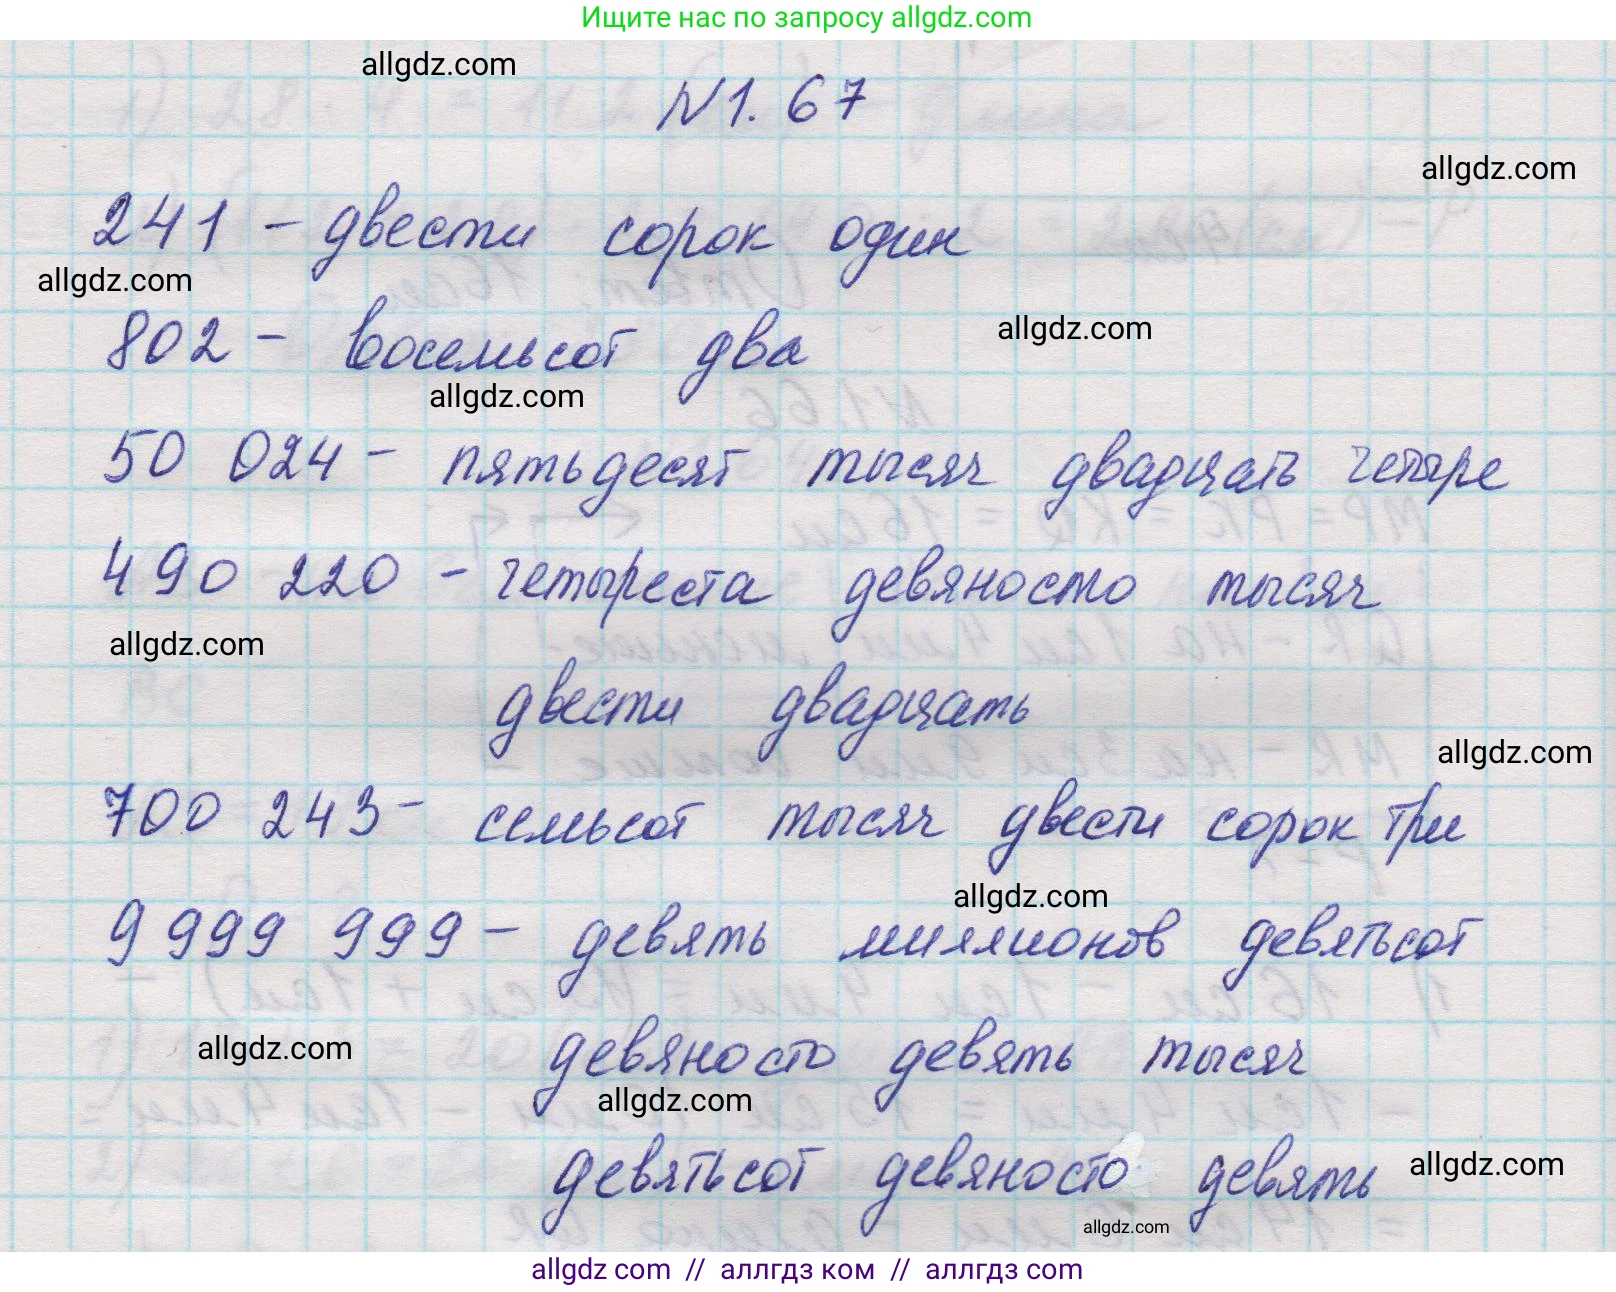 Ищите нас по запросу allgdz.com
allgdz.com
N1.67
allgdz.com
241 - двести сорок один
allgdz.com
802 - восемьсот два
allgdz.com
allgdz.com
50 024 - пятьдесят тысяч двадцать четыре
490 220 - четыреста девяносто тысяч
allgdz.com
двести двадцать
allgdz.com
700 243 - семьсот тысяч двести сорок три
allgdz.com
9 999 999 - девять миллионов девятьсот
allgdz.com
девяносто девять тысяч
allgdz.com
девятьсот девяносто девять
allgdz.com
allgdz.com
allgdz com // аллгдз ком // аллгдз com